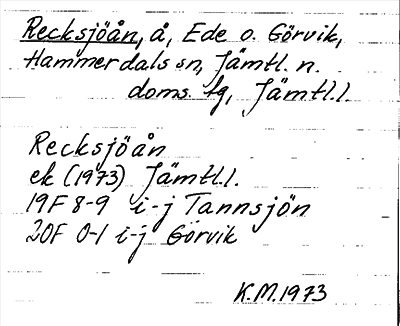 Recksjöån, å, Ede o. Görvik,
Hammerdals sn, Jämtl. n.
doms. tg, Jämtl. l.
Recksjöån
ek (1973) Jämtl. l.
19F 8-9 i-j Tannsjön
20F 0-1 i-j Görvik
K.M. 1973